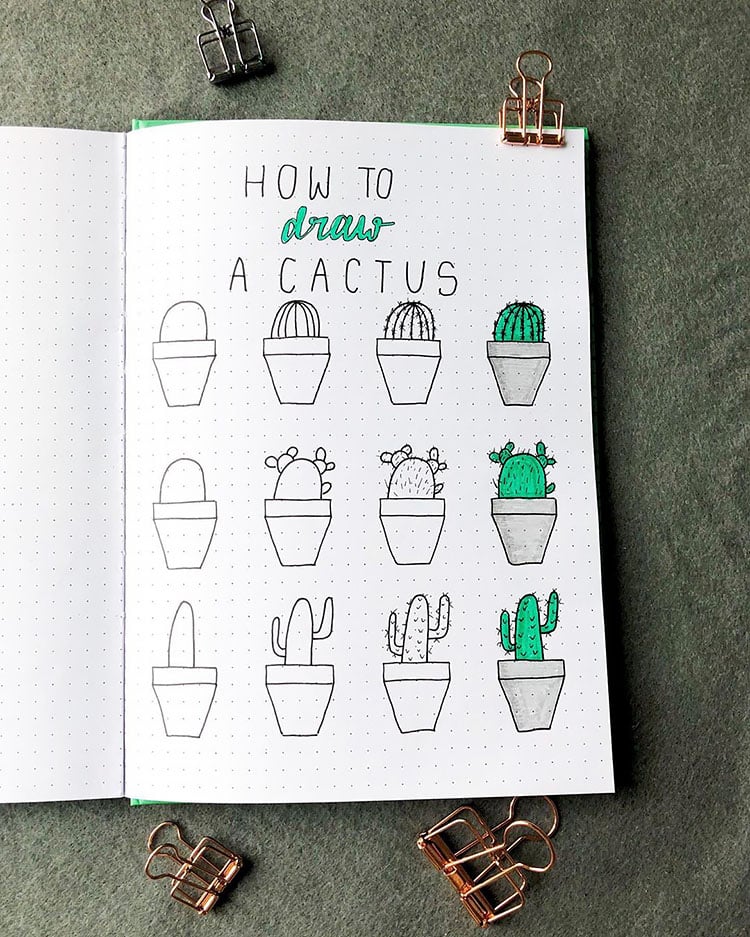 HOW TO
draw
A CACTUS